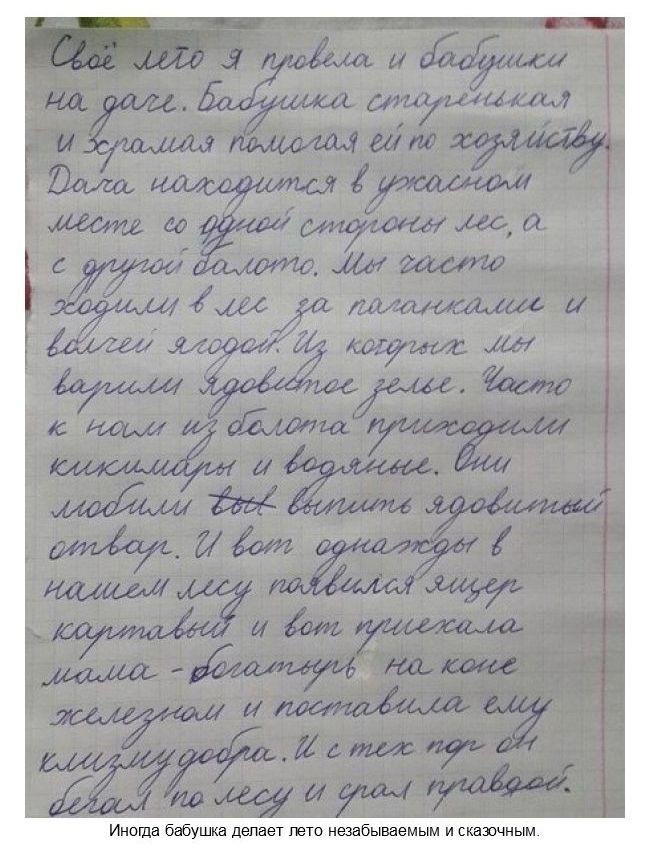 Своё лето я провела и бабушки
на даче. Бабушка старенькая
и храмая помогая ей по хозяйству.
Дача находится в ужасном
месте со одной стороны лес, а
с другой балото. Мы часто
ходили в лес за паганками и
волчей ягодой. Из которых мы
варили ядовитое зелье. Часто
к нам из болота приходили
кикимары и водяные. Они
любили вып выпить ядовитый
отвар. И вот однажды в
нашем лесу появился ящер
картавый и вот приехала
мама - богатырь на коне
железном и поставила ему
клизму добра. И с тех пор он
бегал по лесу и срал правдой.
Иногда бабушка делает лето незабываемым и сказочным.